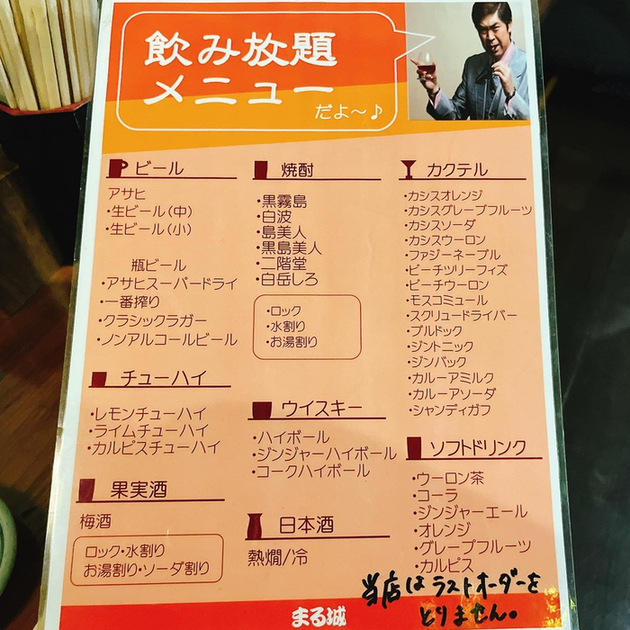 飲み放題
メニュー
だよ～♪
ビール
アサヒ
・生ビール(中)
・生ビール(小)
瓶ビール
・アサヒスーパードライ
・一番搾り
・クラシックラガー
・ノンアルコールビール
チューハイ
・レモンチューハイ
・ライムチューハイ
・カルピスチューハイ
果実酒
梅酒
ロック・水割り
お湯割り・ソーダ割り
焼酎
・黒霧島
・白波
・島美人
・黒島美人
・二階堂
・白岳しろ
・ロック
・水割り
・お湯割り
ウイスキー
・ハイボール
・ジンジャーハイボール
・コークハイボール
日本酒
熱燗/冷
カクテル
・カシスオレンジ
・カシスグレープフルーツ
・カシスソーダ
・カシスウーロン
・ファジーネーブル
・ピーチツリーフィズ
・ピーチウーロン
・モスコミュール
・スクリュードライバー
・ブルドック
・ジントニック
・ジンバック
・カルーアミルク
・カルーアソーダ
・シャンディガフ
ソフトドリンク
・ウーロン茶
・コーラ
・ジンジャーエール
・オレンジ
・グレープフルーツ
・カルピス
当店はラストオーダーを
とりません。
まる城